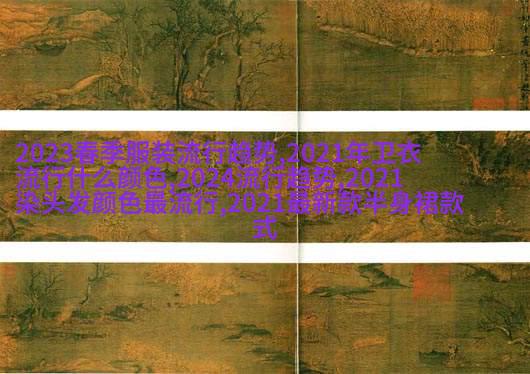 2023春季服装流行趋势,2021年卫衣
流行什么颜色,2024流行趋势,2021
染头发颜色最流行,2021最新款半身裙款
式